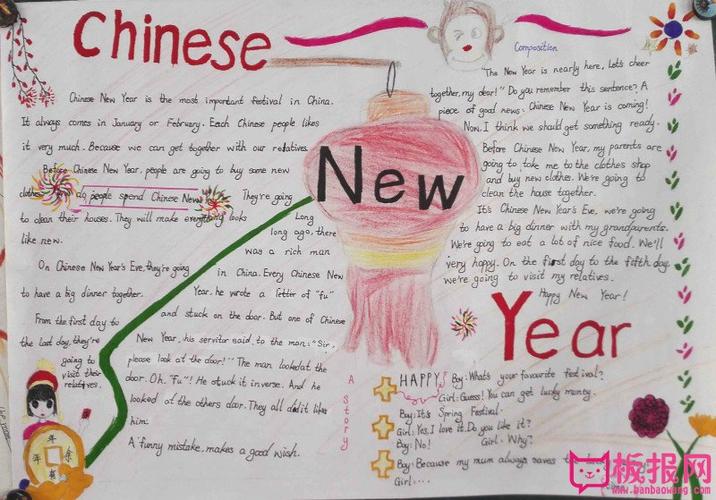 Chinese
New
Year
Chinese New Year is the most important festival in China.
It always comes in January or February. Each Chinese people likes
it very much. Because we can get together with our relatives.
Before Chinese New Year, people are going to buy some new
clothes. do people spend Chinese New They're going
to clean their houses. They will make everything looks
like new.
On Chinese New Year's Eve, they're going
to have a big dinner together.
From the first day to
the last day, they're
going to
visit their
relatives.
Long
long ago, there
was a rich man
in China. Every Chinese New
Year, he wrote a letter of "fu"
and stuck on the door. But one of Chinese
New Year, his servitor said, to the man: "Sir,
please look at the door!" The man looked at the
door. Oh, "Fu"! He stuck it inverse. And he
looked of the others door. They all did it like
him.
A funny mistake, makes a good wish.
A Story
Composition
"The New Year is nearly here, Let's cheer
together, my dear!" Do you remember this sentence? A
piece of good news. Chinese New Year is coming!
Now, I think we should get something ready.
Before Chinese New Year, my parents are
going to take me to the clothes shop
and buy new clothes. We're going to
clean the house together.
It's Chinese New Year's Eve, we're going
to have a big dinner with my grandparents.
We're going to eat a lot of nice food. We'll
very happy. On the first day to the fifth day,
we're going to visit my relatives.
Happy New Year!
HAPPY
Boy: What's your favourite festival?
Girl: Guess! You can get lucky money.
Boy: It's Spring Festival.
Girl: Yes, I love it. Do you like it?
Boy: No! Girl: Why?
Boy: Because my mum always saves
Girl: ...
年
年
余
有
板报网
www.banbaowang.com